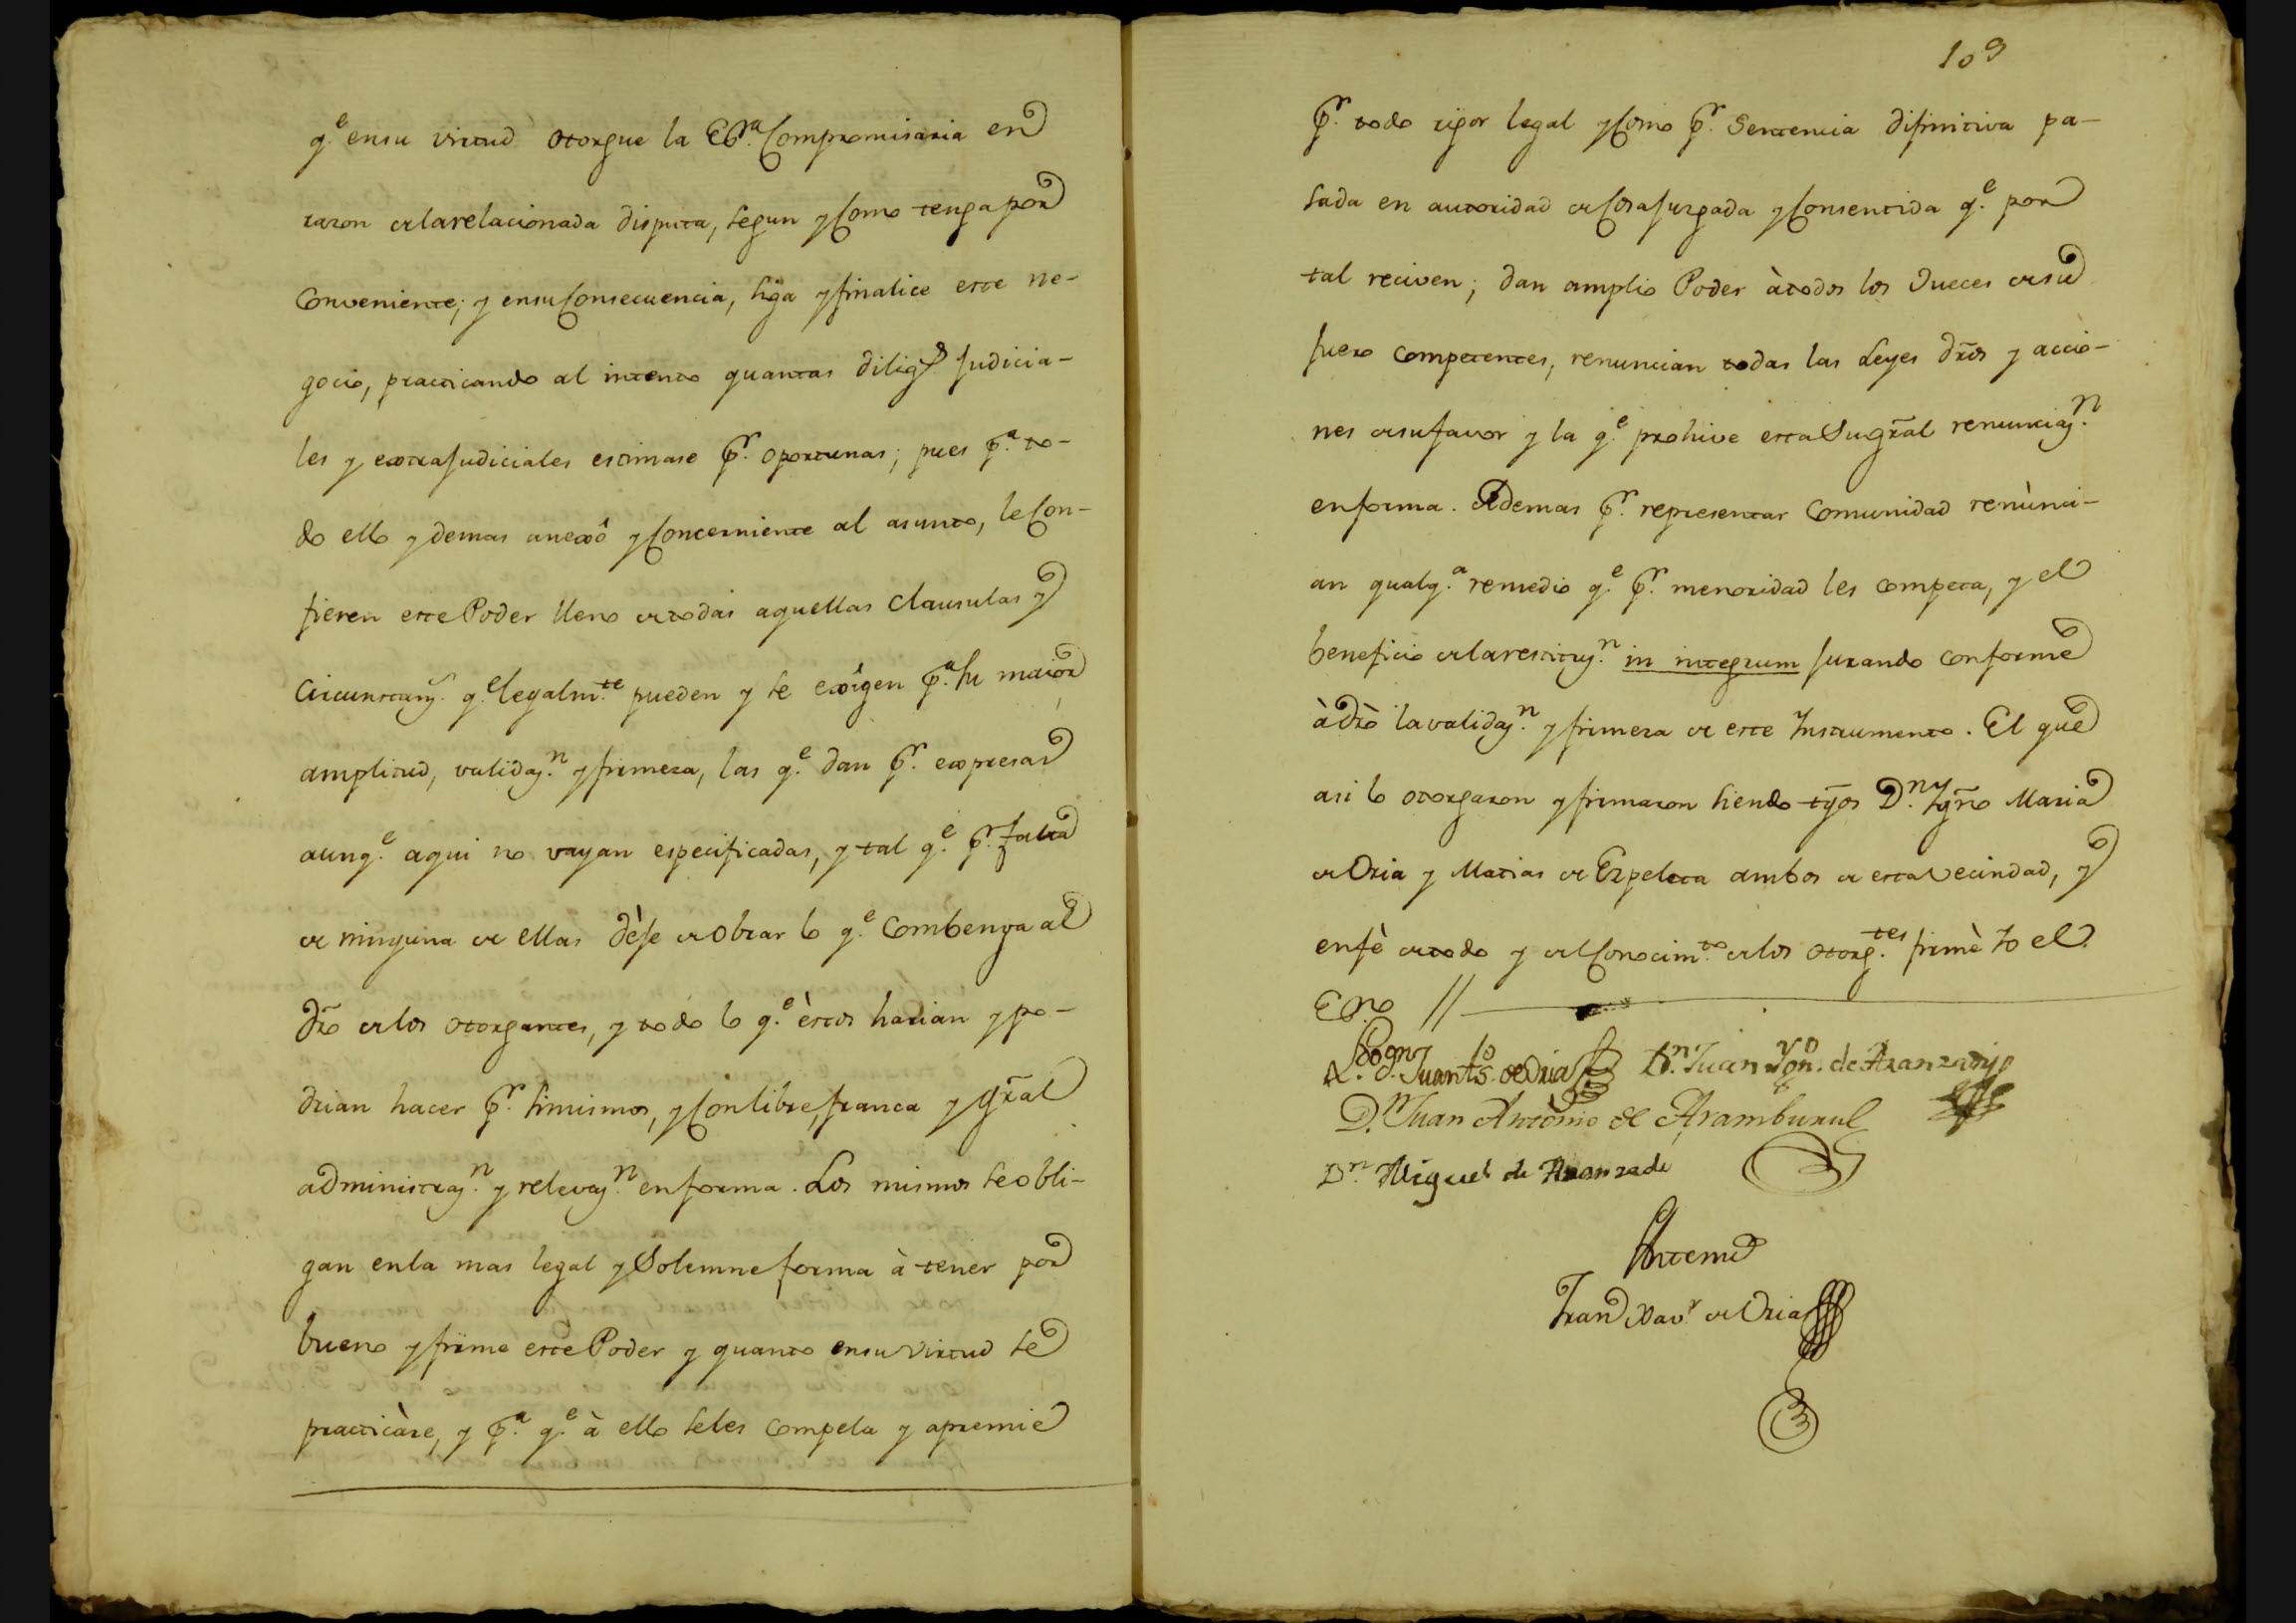 q.e ensu virtud otorgue la Essra. Compromisaria en
razon de la relacionada disputa, segun y Como tenga por
Conveniente; y ensu Consecuencia, siga y finalice este ne-
gocio, practicando al intento quantas dilig.s Judicia-
les y extraJudiciales estimase p.r oportunas; pues p.a to-
do ello y demas anexô y Concerniente al asunto, le Con-
fieren este Poder lleno de todas aquellas Clausulas y
Circunstanz.s q.e legalm.te pueden y se exîgen p.a su maior
amplitud, validaz.n y firmeza, las q.e dan p.r expresas
aunq.e aqui no vayan especificadas, y tal q.e p.r falta
de ninguna de ellas dèje de obrar lo q.e Combenga al
dro de los otorgantes, y todo lo q.e èstos harian y po-
drian hacer p.r simismos, y Con libre, franca y gral
administraz.n y relevaz.n en forma. Los mismos se obli-
gan enla mas legal y Solemne forma à tener por
bueno y firme este Poder y quanto ensu virtud se
practicàre, y p.a q.e à ello seles compela y apremie
109
p.r todo rigor legal y Como p.r Sentencia difinitiva pa-
sada en autoridad de Cosa Juzgada y Consentida q.e por
tal reciven; dan amplio Poder à todos los Jueces de su
fuero competentes, renuncian todas las Leyes dros y accio-
nes de su favor y la q.e prohive esta Su gral renunciaz.n
enforma. Ademas p.r representar Comunidad renùnci-
an qualq.a remedio q.e p.r menoridad les competa, y el
beneficio de la restituz.n in integrum Jurando conforme
à dro la validaz.n y firmeza de este Instrumento. El que
asi lo otorgaron y firmaron siendo tgos D.n Ygno Maria
de Oria y Matias de Ezpeleta ambos de esta vecindad, y
enfè de todo y del Conocim.to de los otorg.tes firmè Yo el
Essno //
D.n Juan de Oria D.n Juan Ygn.o de Aranzadi
D.n Juan Antonio de Aramburu
D.n Miguel de Aranzadi
Antemi
Fran Xav.r de Oria